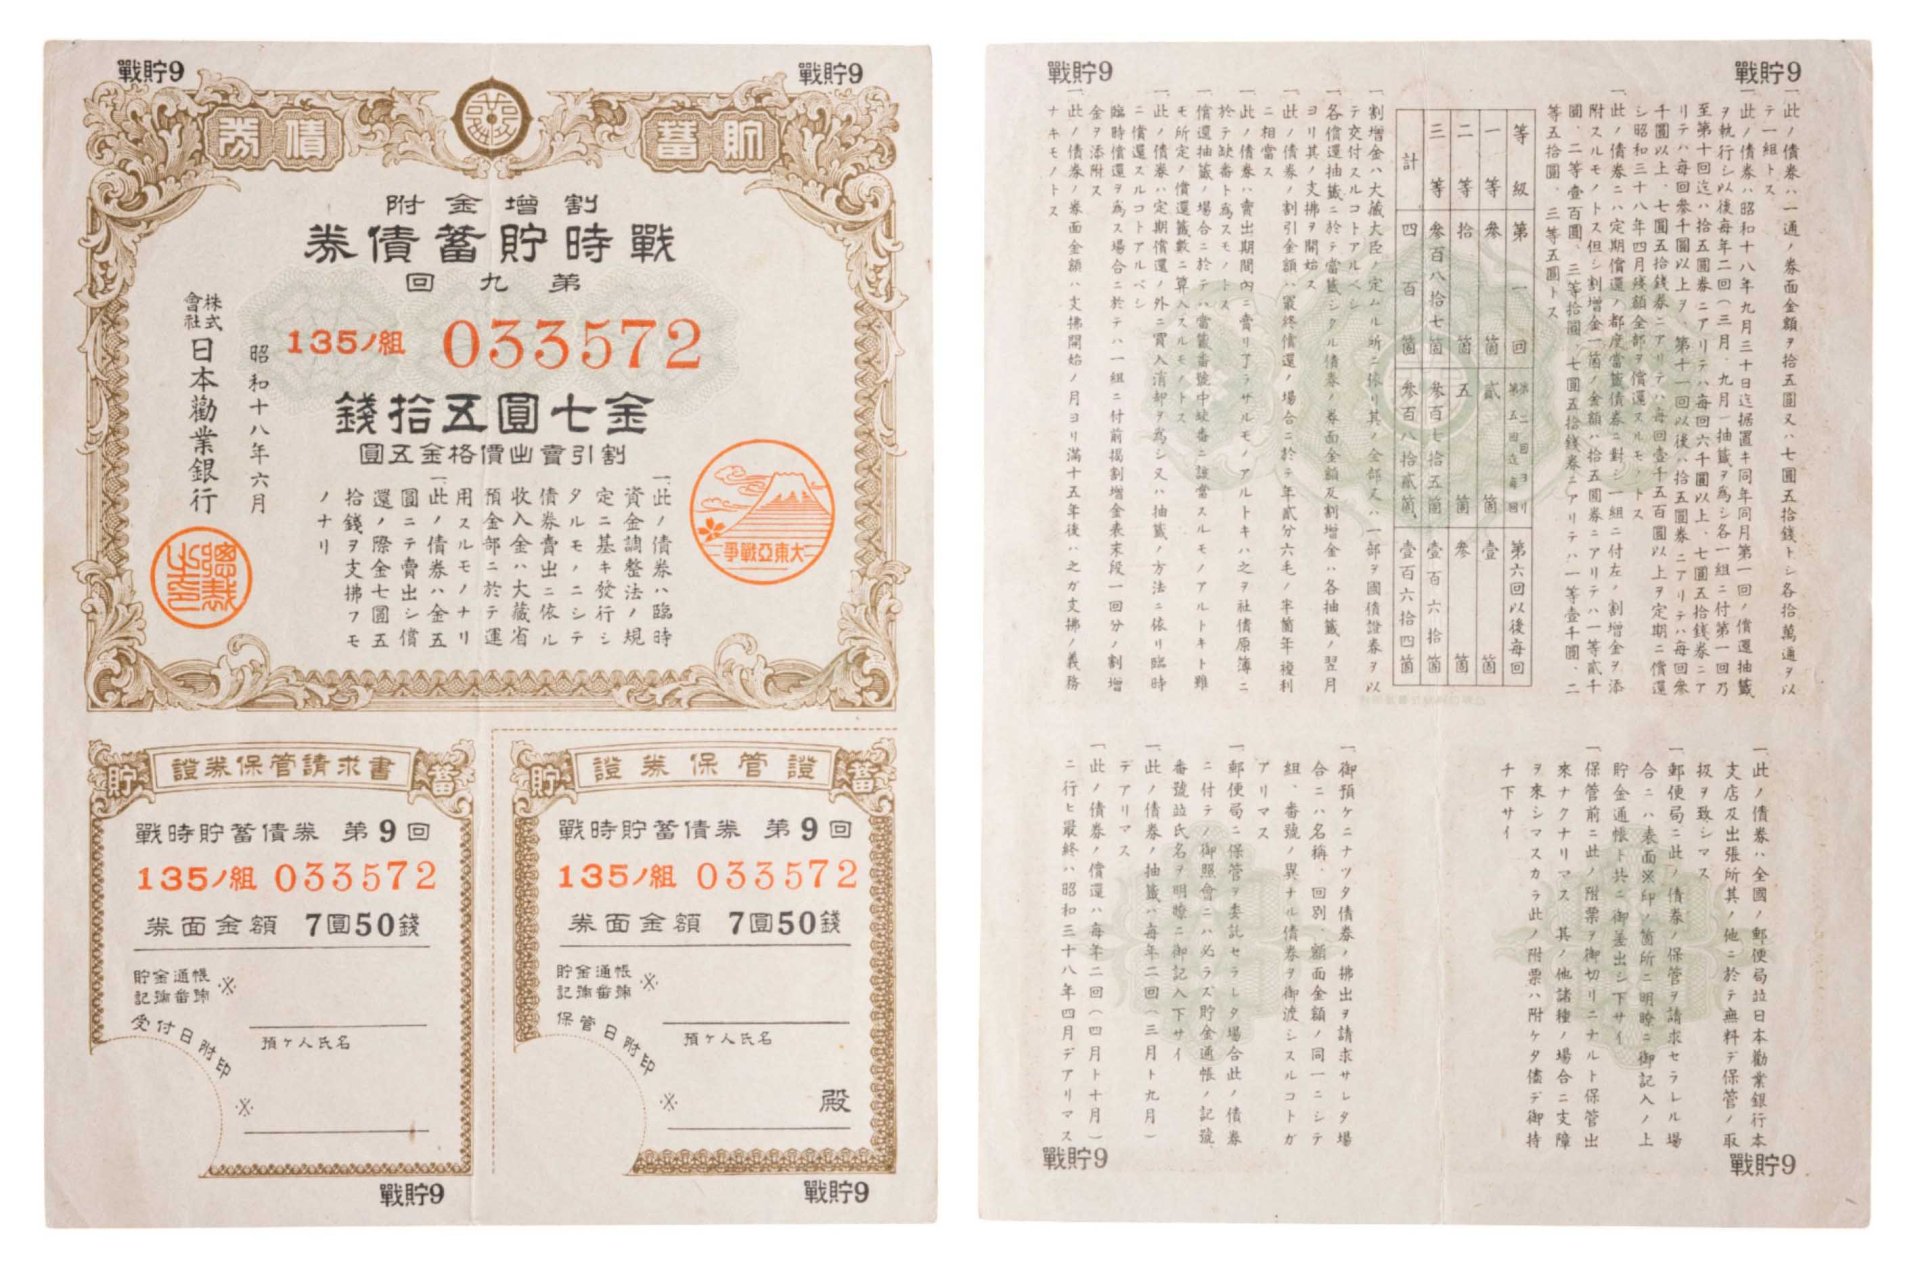 戰貯9
戰貯9
貯蓄
債券
割增金附
戰時貯蓄債券
第九回
135ノ組 033572
金七圓五拾錢
割引賣出價格金五圓
一此ノ債券ハ臨時
資金調整法ノ規
定ニ基キ發行シ
タルモノニシテ
債券賣出ニ依ル
收入金ハ大藏省
預金部ニ於テ運
用スルモノナリ
一此ノ債券ハ金五
圓ニテ賣出シ償
還ノ際金七圓五
拾錢ヲ支拂フモ
ノナリ
大東亞戰爭
昭和十八年六月
株式會社日本勸業銀行
總裁之印
貯蓄
證券保管請求書
戰時貯蓄債券 第9回
135ノ組 033572
券面金額 7圓50錢
貯金通帳
記號番號
※
受付日附印
預ケ人氏名
※
戰貯9
貯蓄
證券保管證
戰時貯蓄債券 第9回
135ノ組 033572
券面金額 7圓50錢
貯金通帳
記號番號
※
保管日附印
預ケ人氏名
※
殿
戰貯9
戰貯9
戰貯9
一此ノ債券ハ一通ノ券面金額ヲ拾五圓又ハ七圓五拾錢トシ各拾萬通ヲ以
テ一組トス
一此ノ債券ハ昭和十八年九月三十日迄据置キ同年同月第一回ノ償還抽籤
ヲ執行シ以後每年二回(三月、九月)抽籤ヲ爲シ各一組ニ付第一回乃
至第十回迄ハ拾五圓券ニアリテハ每回六千圓以上、七圓五拾錢券ニア
リテハ每回參千圓以上ヲ、第十一回以後ハ拾五圓券ニアリテハ每回參
千圓以上、七圓五拾錢券ニアリテハ每回壹千五百圓以上ヲ定期ニ償還
シ昭和三十八年四月殘額全部ヲ償還スルモノトス
一此ノ債券ニハ定期償還ノ都度當籤債券ニ對シ一組ニ付左ノ割增金ヲ添
附スルモノトス但シ割增金一箇ノ金額ハ拾五圓券ニアリテハ一等貳千
圓、二等壹百圓、三等拾圓、七圓五拾錢券ニアリテハ一等壹千圓、二
等五拾圓、三等五圓トス
等級 第一回 第二回ヨリ第五回迄每回 第六回以後每回
一等 參箇 貳箇 壹箇
二等 拾箇 五箇 參箇
三等 參百八拾七箇 參百七拾五箇 壹百六拾箇
計 四百箇 參百八拾貳箇 壹百六拾四箇
一割增金ハ大藏大臣ノ定ムル所ニ依リ其ノ全部又ハ一部ヲ國債證券ヲ以
テ交付スルコトアルベシ
一各償還抽籤ニ於テ當籤シタル債券ノ券面金額及割增金ハ各抽籤ノ翌月
ヨリ其ノ支拂ヲ開始ス
一此ノ債券ノ割引金額ハ最終償還ノ場合ニ於テ年貳分六毛ノ半箇年複利
ニ相當ス
一此ノ債券ハ賣出期間內ニ賣リ了ラサルモノアルトキハ之ヲ社債原簿ニ
於テ缺番ト爲スモノトス
一償還抽籤ノ場合ニ於テハ當籤番號中缺番ニ該當スルモノアルトキト雖
モ所定ノ償還籤數ニ算入スルモノトス
一此ノ債券ハ定期償還ノ外ニ買入消却ヲ爲シ又ハ抽籤ノ方法ニ依リ臨時
ニ償還スルコトアルベシ
臨時償還ヲ爲ス場合ニ於テハ一組ニ付前揭割增金表末段一回分ノ割增
金ヲ添附ス
一此ノ債券ノ券面金額ハ支拂開始ノ月ヨリ滿十五年後ハ之ガ支拂ノ義務
ナキモノトス
一此ノ債券ハ全國ノ郵便局竝日本勸業銀行本
支店及出張所其ノ他ニ於テ無料デ保管ノ取
扱ヲ致シマス
一郵便局ニ此ノ債券ノ保管ヲ請求セラレル場
合ニハ表面※印ノ箇所ニ明瞭ニ御記入ノ上
貯金通帳ト共ニ御差出シ下サイ
一保管前ニ此ノ附票ヲ御切リニナルト保管出
來ナクナリマス 其ノ他諸種ノ場合ニ支障
ヲ來シマスカラ此ノ附票ハ附ケタ儘デ御持
チ下サイ
一御預ケニナツタ債券ノ拂出ヲ請求サレタ場
合ニハ名稱、回別、額面金額ノ同一ニシテ
組、番號ノ異ナル債券ヲ御渡シスルコトガ
アリマス
一郵便局ニ保管ヲ委託セラレタ場合此ノ債券
ニ付テノ御照會ニハ必ラズ貯金通帳ノ記號
番號竝氏名ヲ明瞭ニ御記入下サイ
一此ノ債券ノ抽籤ハ每年二回(三月ト九月)
デアリマス
一此ノ債券ノ償還ハ每年二回(四月ト十月)
ニ行ヒ最終ハ昭和三十八年四月デアリマス
戰貯9
戰貯9